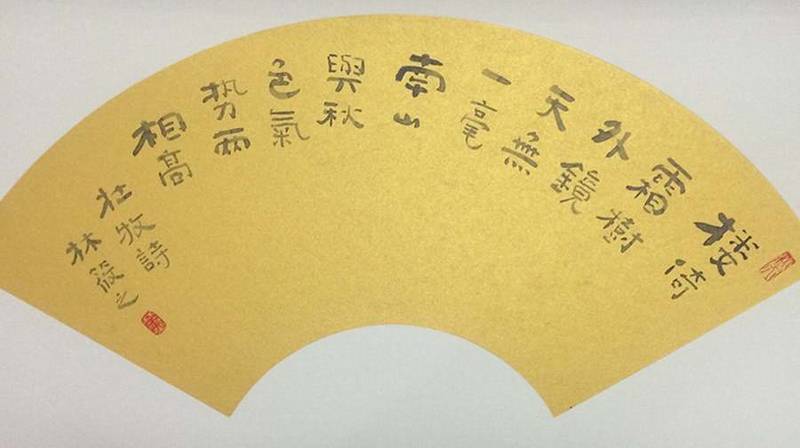 楼倚
霜樹
外鏡
天無
一毫
南山
與秋
色氣
势两
相高
杜牧詩
林筱之